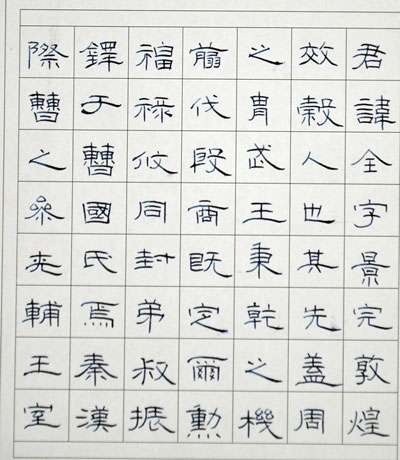 君諱全字景完敦煌
效穀人也其先蓋周
之胄武王秉乾之機
翦伐殷商既定爾勳
福祿攸同封弟叔振
鐸于曹國氏焉秦漢
際曹之參夾輔王室